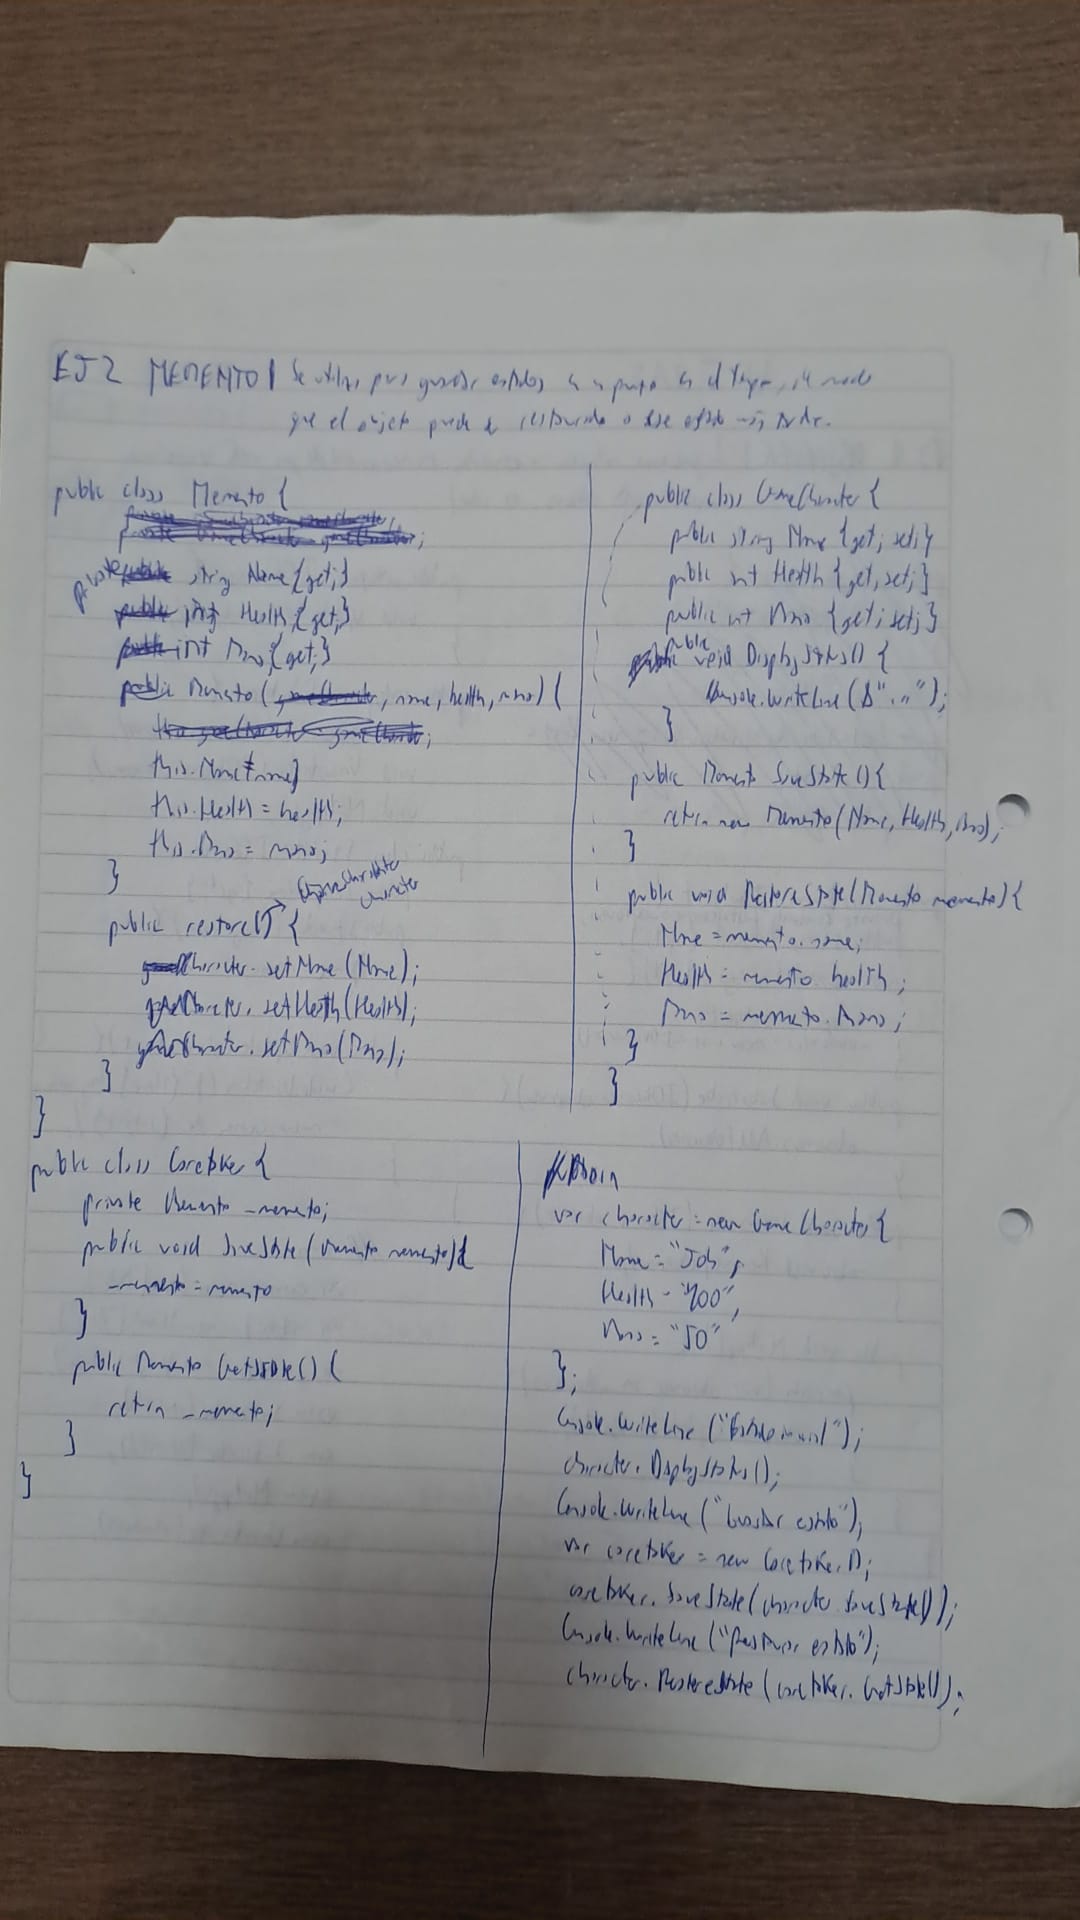 EJ2 MEMENTO | Se utiliza para guardar estados en un punto en el tiempo, de modo
que el objeto pueda ser restaurado a ese estado más tarde.
public class Memento {
private string Name {get;}
int Health {get;}
int Mana {get;}
public Memento ( , name, health, mana) {
this.Name = name;
this.Health = health;
this.Mana = mana;
}
public restore() {
character
character.setName(Name);
Character.setHealth(Health);
Character.setMana(Mana);
}
}
public class GameCharacter {
public string Name {get; set;}
public int Health {get; set;}
public int Mana {get; set;}
public void DisplayStats() {
Console.WriteLine($"...");
}
public Memento SaveState() {
return new Memento(Name, Health, Mana);
}
public void RestoreState(Memento memento) {
Name = memento.name;
Health = memento.health;
Mana = memento.Mana;
}
}
public class Caretaker {
private Memento _memento;
public void SaveState (Memento memento) {
_memento = memento
}
public Memento GetState() {
return _memento;
}
}
Main
var character = new GameCharacter {
Name = "Joh",
Health = "100",
Mana = "50"
};
Console.WriteLine ("Estado inicial");
character.DisplayStats();
Console.WriteLine ("Guardar estado");
var caretaker = new Caretaker();
caretaker.SaveState(character.SaveState());
Console.WriteLine ("Restaurar estado");
character.RestoreState (caretaker.GetState());